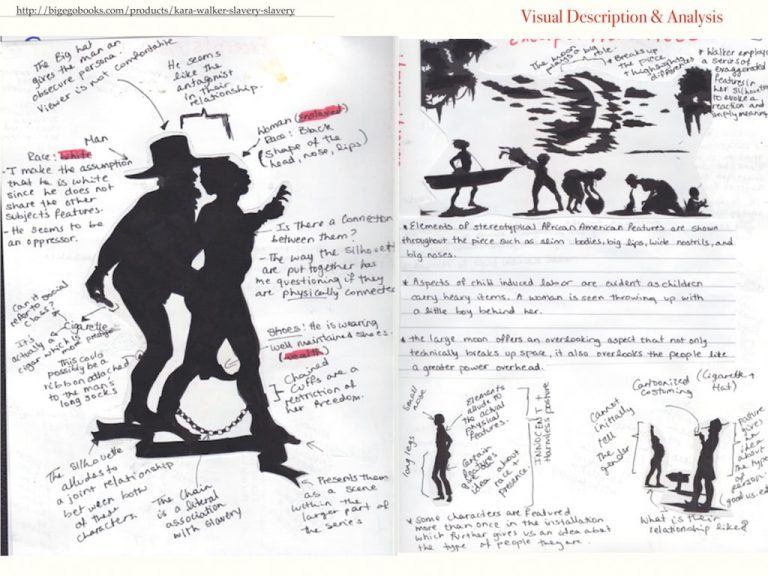 http://bigegobooks.com/products/kara-walker-slavery-slavery
Visual Description & Analysis
The Big hat
gives the man an
obscure persona.
Viewer is not comfortable
He seems
like the
antagonist
in their
relationship.
Woman (enslaved)
Race: Black
(Shape of the
head, nose, lips)
Man
Race: White
- I make the assumption
that he is white
since he does not
share the other
subjects features.
- He seems to be
an oppressor.
- Is there a connection
between them?
- The way the silhouettes
are put together has
me questioning if they
are physically connected
Can it
refer to social
class?
It's
actually a Cigarette
cigar which is more
This could
possibly be a
ribbon attached
to the man's
long socks
Shoes: He is wearing
well maintained shoes.
(wealth)
Chained
Cuffs are a
restriction of
her freedom.
The Silhouette
alludes to
a joint relationship
between both
of these
characters.
The Chain
is a literal
association
with slavery
Presents them
as a scene
within the
larger part of
the series
The moon
plays a big role.
* Breaks up
the piece
+ highlights
differences
* Walker employs
a series of
exaggerated
features in
her silhouettes
to evoke a
reaction and
imply meaning
* Elements of stereotypical African American features are shown
throughout the piece such as slim bodies, big lips, wide nostrils, and
big noses.
* Aspects of child induced labor are evident as children
carry heavy items. A woman is seen throwing up with
a little boy behind her.
* the large moon offers an overlooking aspect that not only
technically breaks up space, it also overlooks the people like
a greater power overhead.
Small
nose
long legs
Elements
allude to
the actual
physical
features.
Certain
features
give
idea about
race +
presence.
INNOCENT +
harmless posture
Cartoonized
costuming
(Cigarette +
Hat)
Cannot
initially
tell
The
gender
Posture
gives
an
idea
about
the type
of
person.
What is their
relationship like?
* Some characters are featured
more than once in the installation
which further gives us an idea about
the type of people they are.